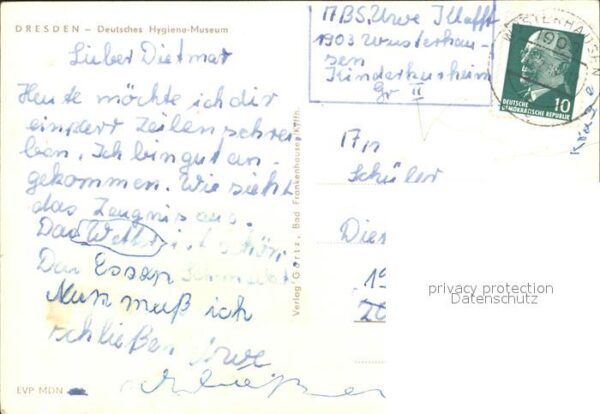 DRESDEN – Deutsches Hygiene-Museum
Lieber Dietmar
Heute möchte ich dir
ein paar Zeilen schrei-
ben. Ich bin gut an-
gekommen. Wie sieht
das Zeugnis aus.
Das Wetter ist schön
Das Essen schmeckt
Nun muß ich
schließen Uwe
EVP MDN
Verlag Görtz, Bad Frankenhausen/Kyffh.
ABS. Uwe Klafft
1903 Wusterhau-
sen
Kinderkurheim
Gr II
WUSTERHAUSEN
190
DEUTSCHE
DEMOKRATISCHE REPUBLIK
10
An
Schüler
Die
19
privacy protection
Datenschutz